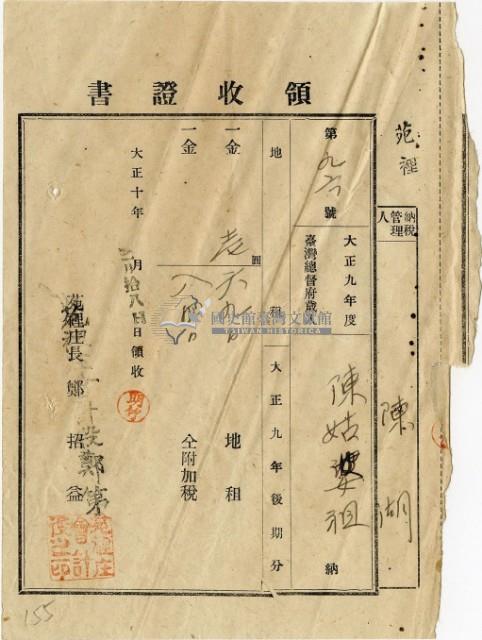 領收證書
苑裡
納稅管理人
陳湖
第九六號
大正九年度
臺灣總督府歲入
陳姑婆祖
納
地租
大正九年後期分
一金
圓
地租
一金
仝附加稅
大正十年
月拾八日領收
苑裡庄長 鄭招益
國史館臺灣文獻館
TAIWAN HISTORICA
155